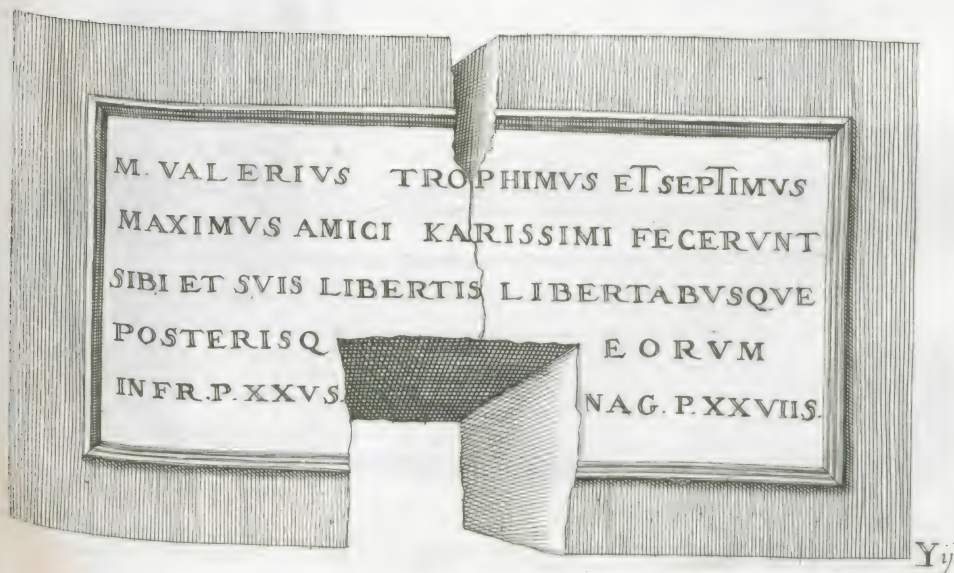 M. VALERIVS TROPHIMVS ET SEPTIMVS
MAXIMVS AMICI KARISSIMI FECERVNT
SIBI ET SVIS LIBERTIS LIBERTABVSQVE
POSTERISQ EORVM
IN FR. P. XXVS. N AG. P. XXVIIS.
Y ij